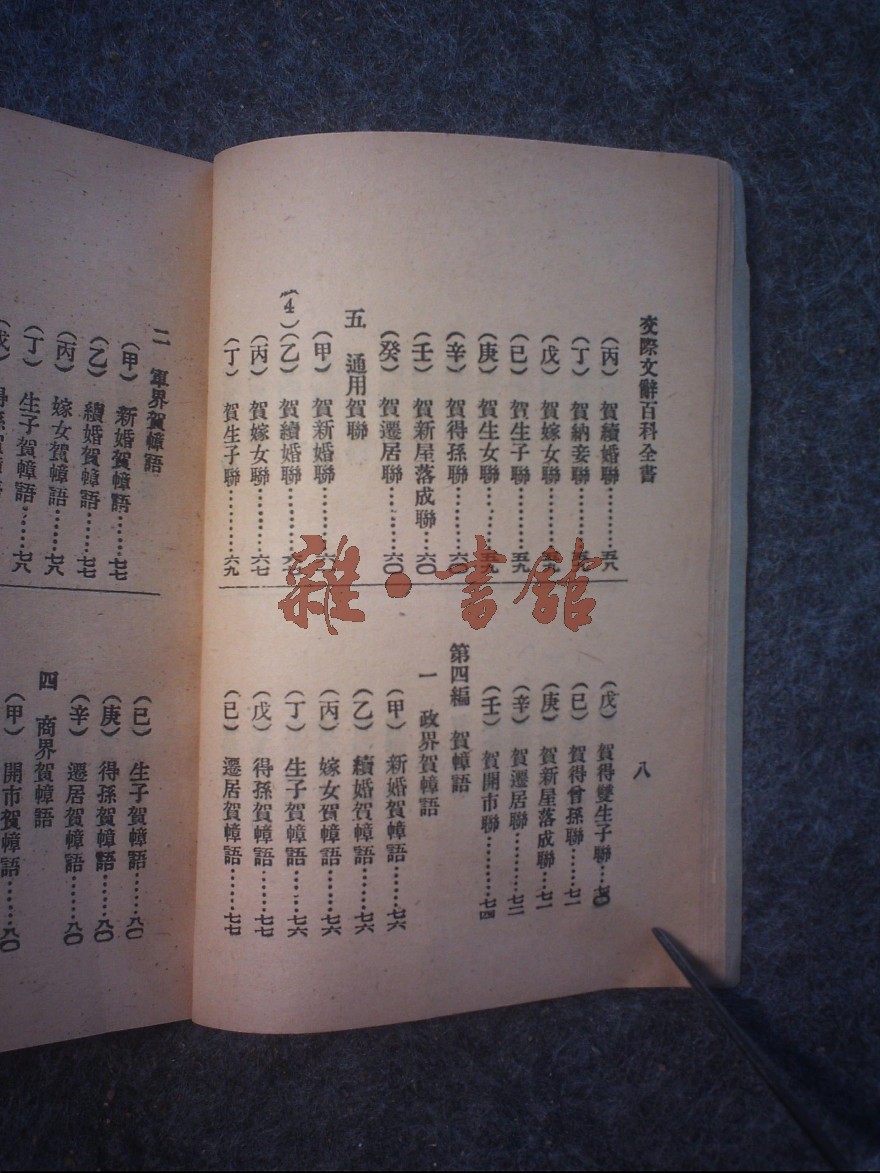 交際文辭百科全書
八
(丙) 賀續婚聯………五八
(丁) 賀納妾聯………五九
(戊) 賀嫁女聯………五九
(已) 賀生子聯………五九
(庚) 賀生女聯………五九
(辛) 賀得孫聯………六〇
(壬) 賀新屋落成聯…六〇
(癸) 賀遷居聯………六〇
五 通用賀聯
(甲) 賀新婚聯………六
4)(乙) 賀續婚聯………六七
(丙) 賀嫁女聯………六七
(丁) 賀生子聯………六九
(戊) 賀得雙生子聯…七〇
(已) 賀得曾孫聯……七一
(庚) 賀新屋落成聯…七一
(辛) 賀遷居聯………七二
(壬) 賀開市聯………七四
第四編 賀幛語
一 政界賀幛語
(甲) 新婚賀幛語……七六
(乙) 續婚賀幛語……七六
(丙) 嫁女賀幛語……七六
(丁) 生子賀幛語……七六
(戊) 得孫賀幛語……七七
(已) 遷居賀幛語……七七
二 軍界賀幛語
(甲) 新婚賀幛語……七七
(乙) 續婚賀幛語……七七
(丙) 嫁女賀幛語……七八
(丁) 生子賀幛語……七八
(戊) 得孫賀幛語
(已) 生子賀幛語……八〇
(庚) 得孫賀幛語……八〇
(辛) 遷居賀幛語……八〇
四 商界賀幛語
(甲) 開市賀幛語……八〇
雜·書館